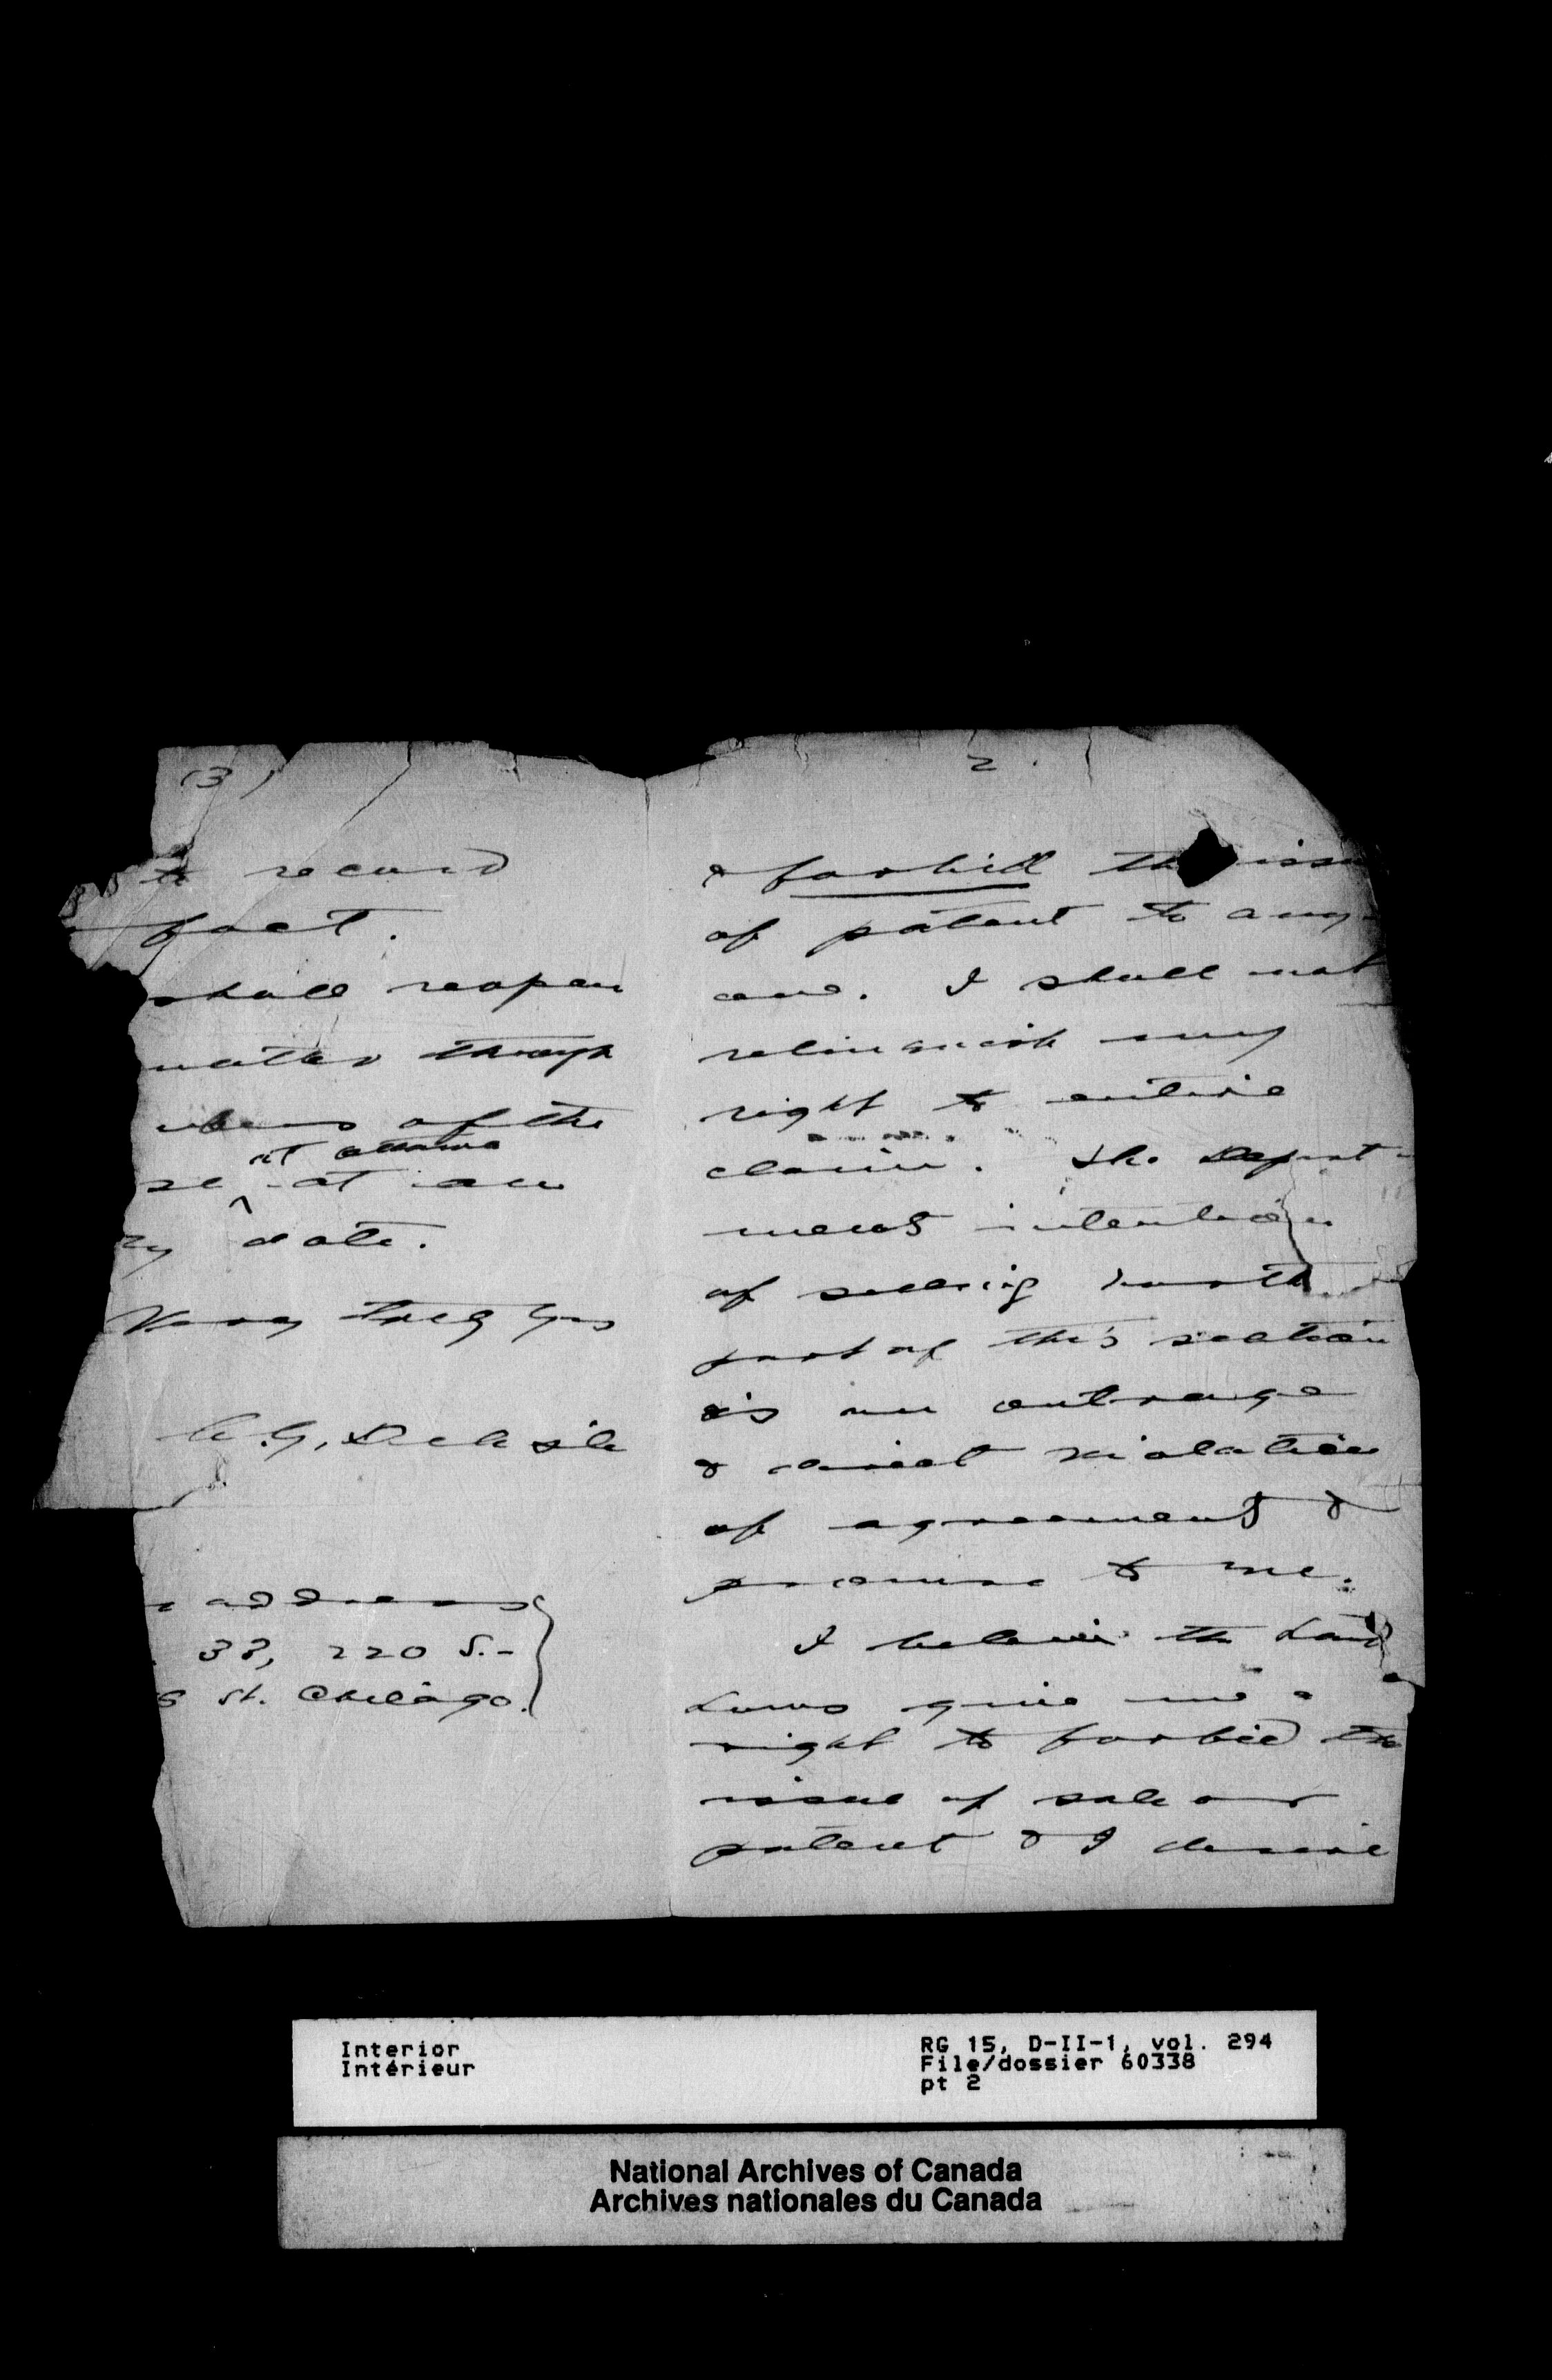 (3)
to record
fact.
shall reopen
matter through
of the
at Ottawa
se ^ at an
ry date.
Very truly yrs
A.G. Delisle
address
33, 220 S.-
St. Chicago.
2.
& forbid the issu
of patent to any-
one. I shall not
relinquish my
right to entire
claim. The Depart-
ments intention
of selling north
part of this section
is an outrage
& direct violation
of agreement &
promise to me.
I believe the Land
Laws give me a
right to forbid the
issue of sale or
patent & I desire
Interior
Intérieur
RG 15, D-II-1, vol. 294
File/dossier 60338
pt 2
National Archives of Canada
Archives nationales du Canada